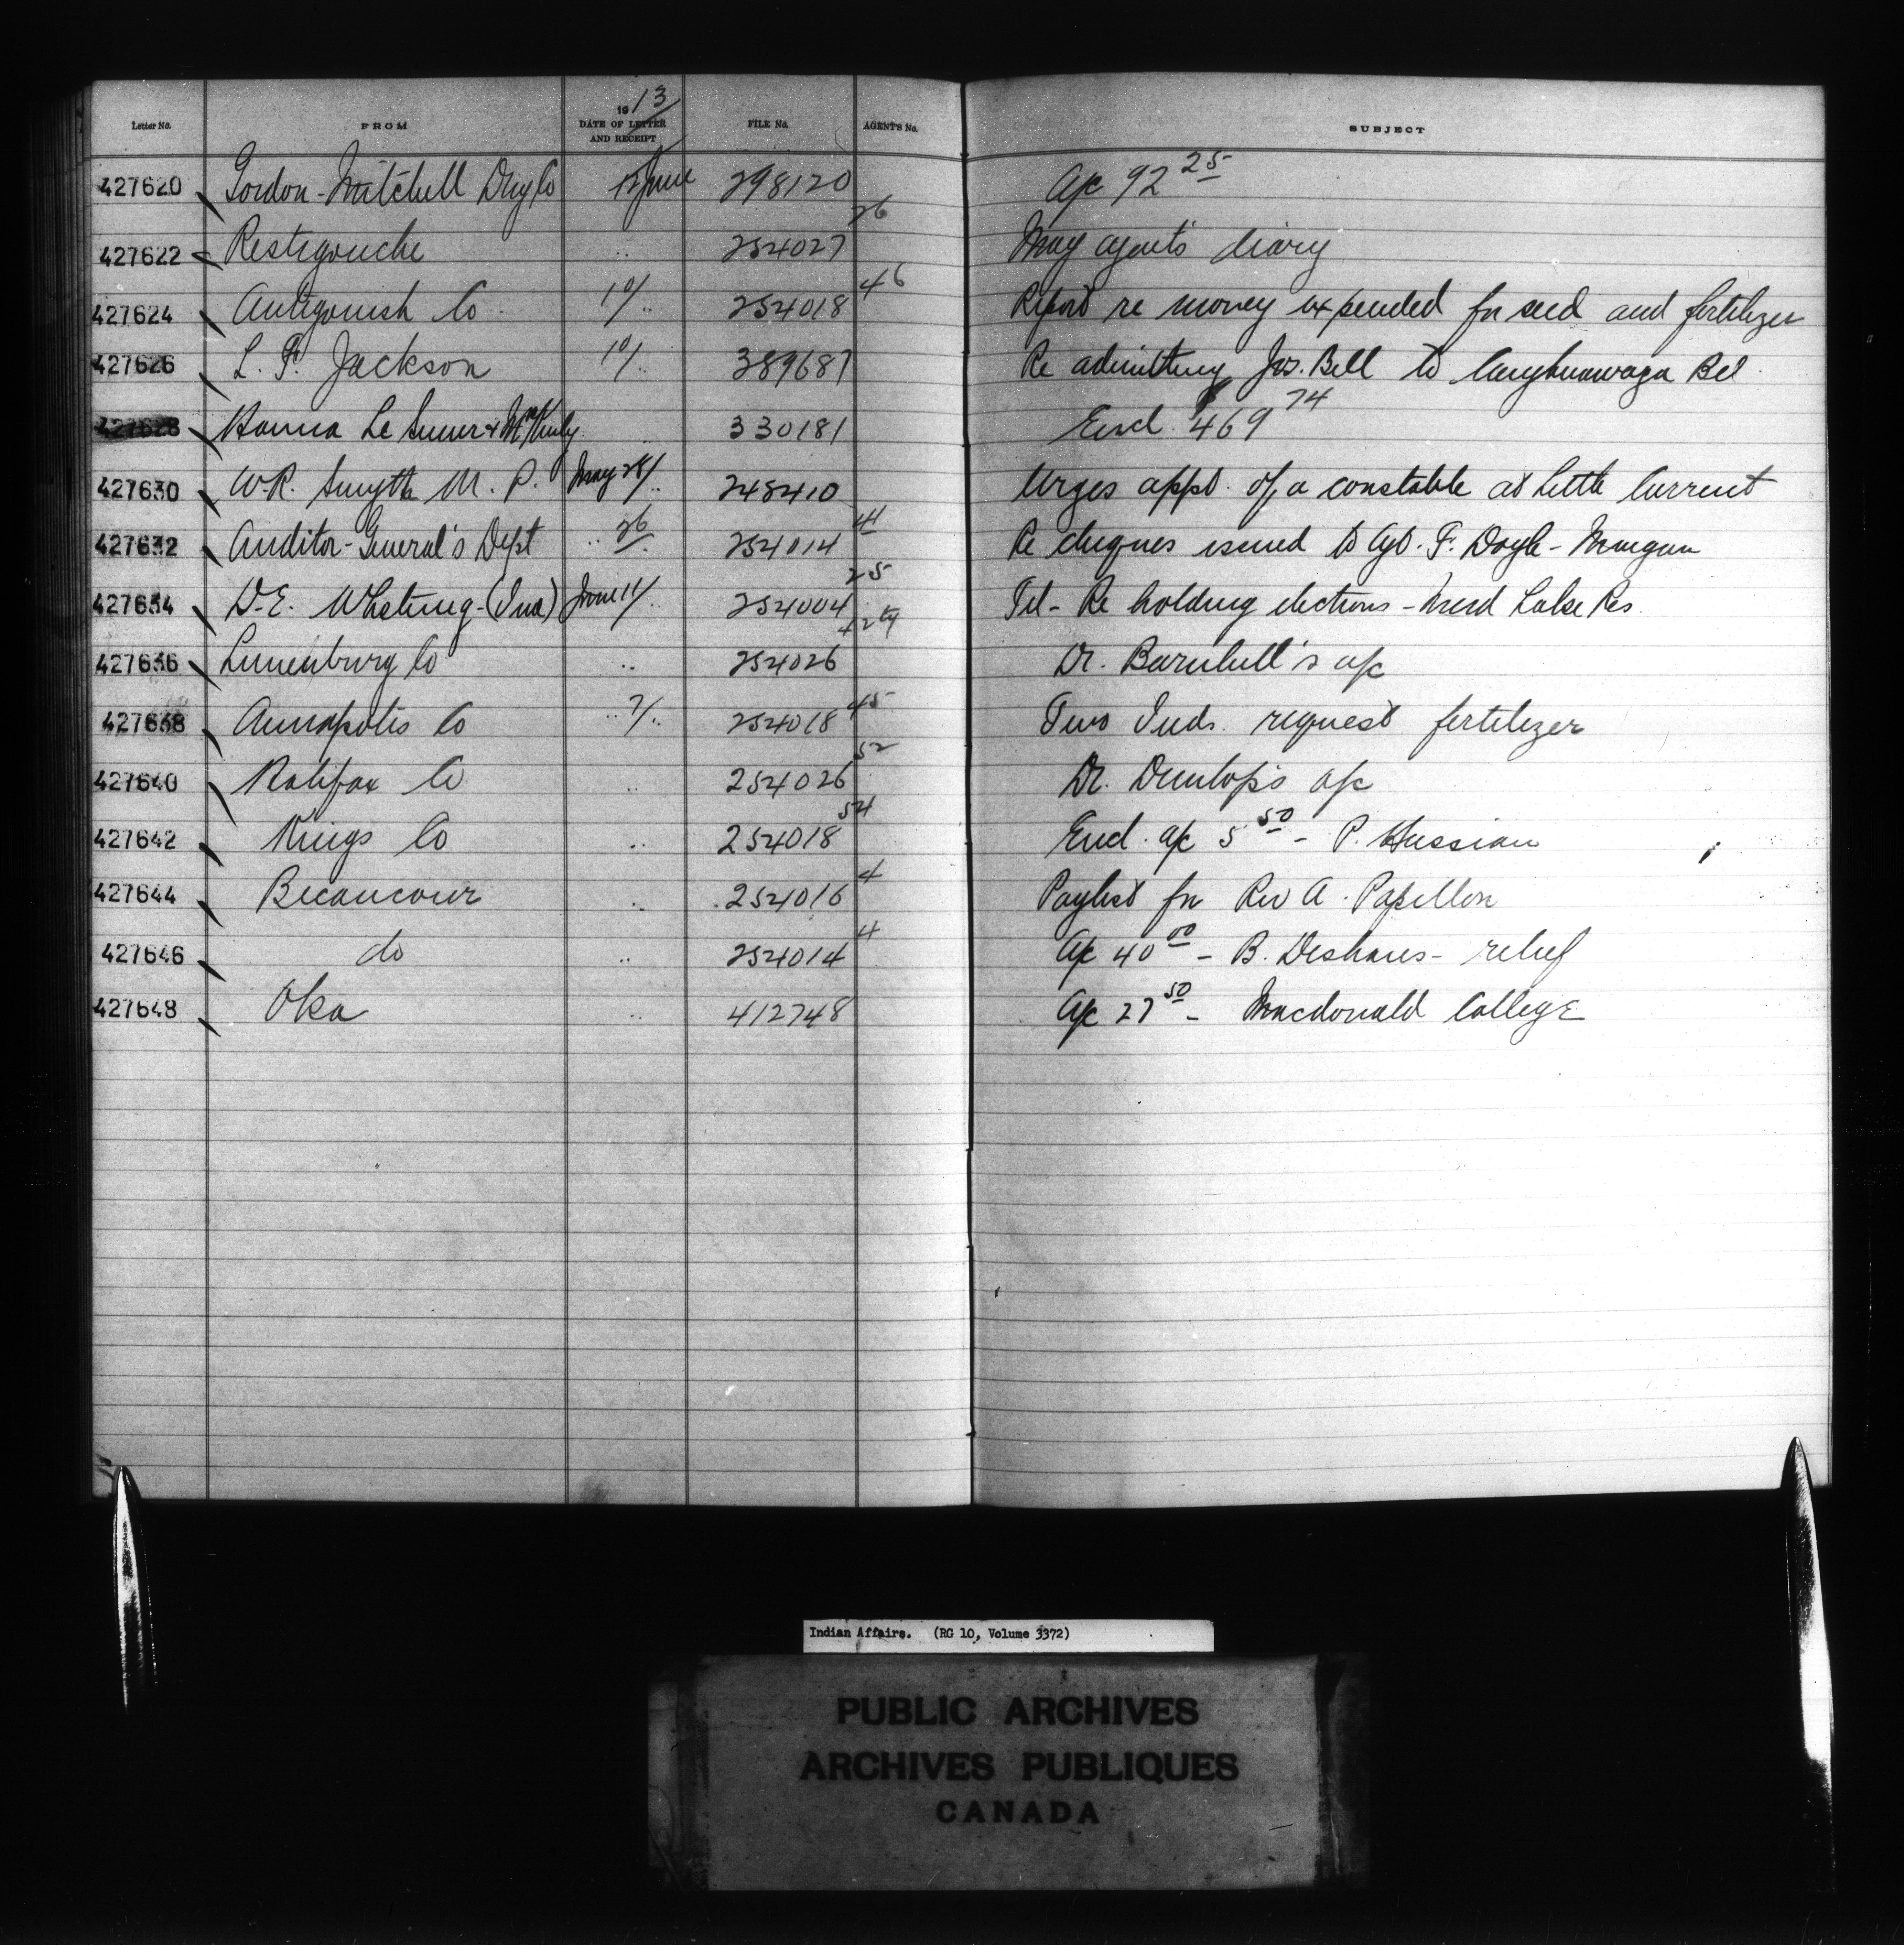 Letter No. FROM 1913 DATE OF LETTER AND RECEIPT FILE No. AGENTS No. SUBJECT
427620 Gordon-Mitchell Drug Co 12 June 298120 a/c 92 25
427622 Restigouche .. 254027 26 May agent's diary
427624 Antigonish Co 10/.. 254018 46 Report re money expended for seed and fertilizer
427626 L. F. Jackson 10/. 389687 Re admitting Jos. Bell to Caughnawaga Bd
427628 Hanna Le & .. 330181 Encl. $469 74
427630 W.R. Smyth M.P. May 28/.. 248410 Urges appt. of a constable at Little Current
427632 Auditor-General's Dept .. 26/. 254014 41 Re cheques issued to Agt. F. Doyle-
427634 D.E. (Ind) June 11/.. 254004 25 Tel- Re holding elections - Mud Lake Res.
427636 Lunenburg Co .. 254026 42 Dr. Barnhill's a/c
427638 Annapolis Co .. 7/.. 254018 45 Two Inds. request fertilizer
427640 Halifax Co .. 254026 52 Dr. Dunlop's a/c
427642 Kings Co .. 254018 54 Encl. a/c 5 50 - P.
427644 Becancour .. 254016 4 Paylist for Rev A. Papillon
427646 do .. 254014 4 a/c 40 00 - B. Deshaies - relief
427648 Oka .. 412748 a/c 27 50 - Macdonald College
Indian Affairs. (RG 10, Volume 3372)
PUBLIC ARCHIVES
ARCHIVES PUBLIQUES
CANADA